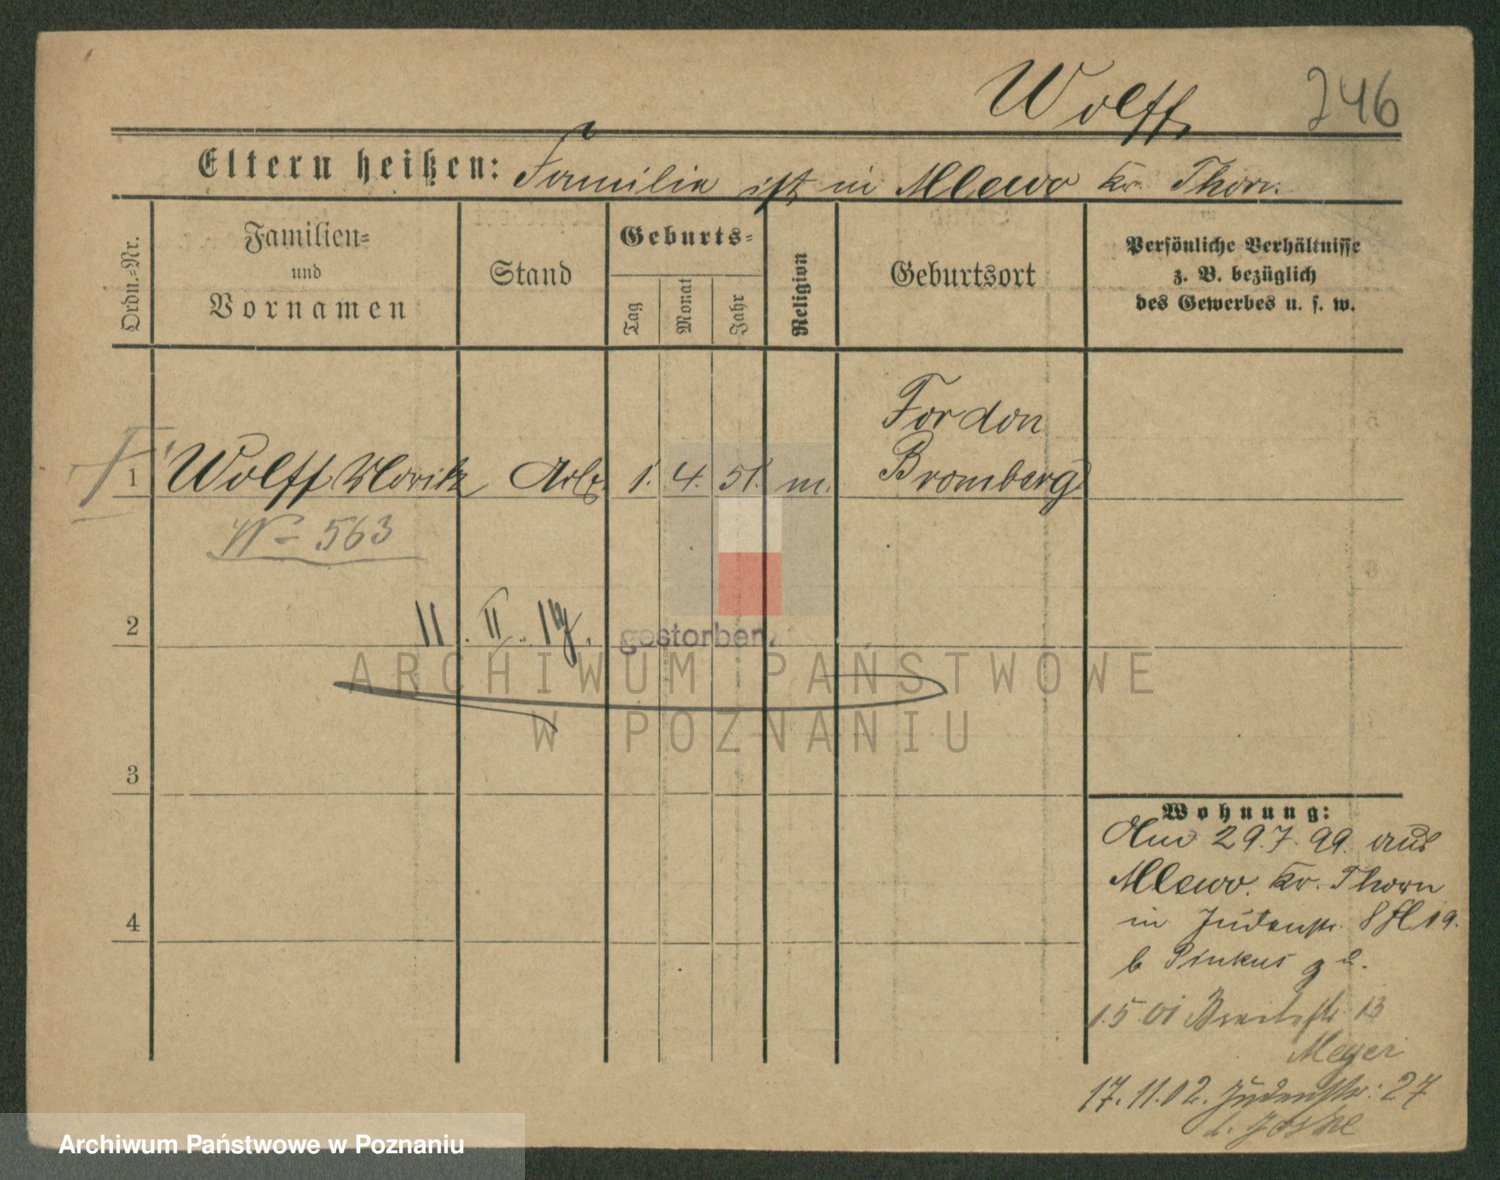 Wolff
246
Eltern heißen: Familie ist in Mlewo Kr. Thorn.
Ordn.-Nr.
Familien-
und
Vornamen
Stand
Geburts-
Tag
Monat
Jahr
Religion
Geburtsort
Persönliche Verhältnisse
z. B. bezüglich
des Gewerbes u. s. w.
Fordon
1 Wolff Moritz Arb. 1. 4. 51. m. Bromberg
N= 563
2
11. II. 19. gestorben.
ARCHIWUM PAŃSTWOWE
W POZNANIU
3
Wohnung:
29.7.99. aus
Mlewo. Kr. Thorn
4
in Judenstr. 8 19.
b Pinkus
1.5 01 Breitestr 13
Meyer
17.11.02. Judenstr: 27
Joske
Archiwum Państwowe w Poznaniu